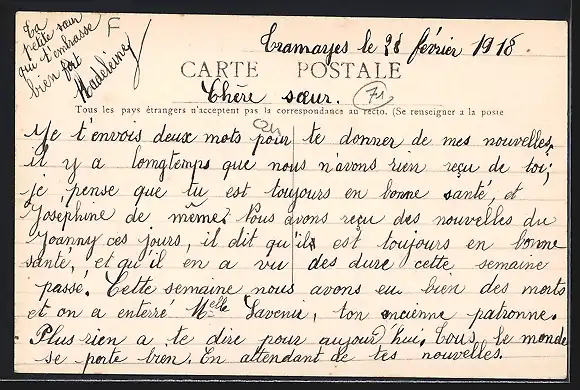 Ta
petite sœur
qui t'embrasse
bien fort
Madeleine
F
Tramayes le 28 février 1918.
CARTE POSTALE
Chère sœur.
71
Tous les pays étrangers n'acceptent pas la correspondance au recto. (Se renseigner a la poste
Je t'envois deux mots pour te donner de mes nouvelles.
il y a lomgtemps que nous n'avons rien reçu de toi;
je pense que tu est toujours en bonne santé, et
Joséphine de même? Nous avons reçu des nouvelles du
Joanny ces jours, il dit qu'ils est toujours en bonne
santé, et qu'il en a vu des dure cette semaine
passe. Cette semaine nous avons eu bien des morts
et on a enterré Melle Savenie, ton encienne patronne.
Plus rien a te dire pour aujourd'hui. Tous le monde
se porte bien. En attendant de tes nouvelles.